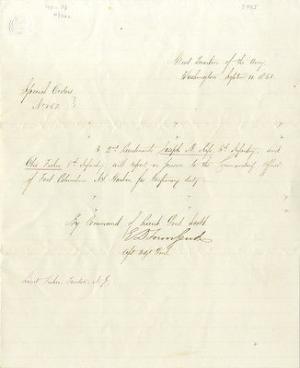 Head Quarters of the Army
Washington, Septr 11, 1861
Special Orders
No.
2nd Lieutenants Joseph H. 8th Infantry, and
Otis Fisher 8th Infantry will report in person to the Commanding Officer
of Fort Columbus N.Y. Harbor for temporary duty.
By Command of Lieut Genl Scott
E D Townsend
Asst Adjt Genl
Lieut Fisher, Trenton, N.J.